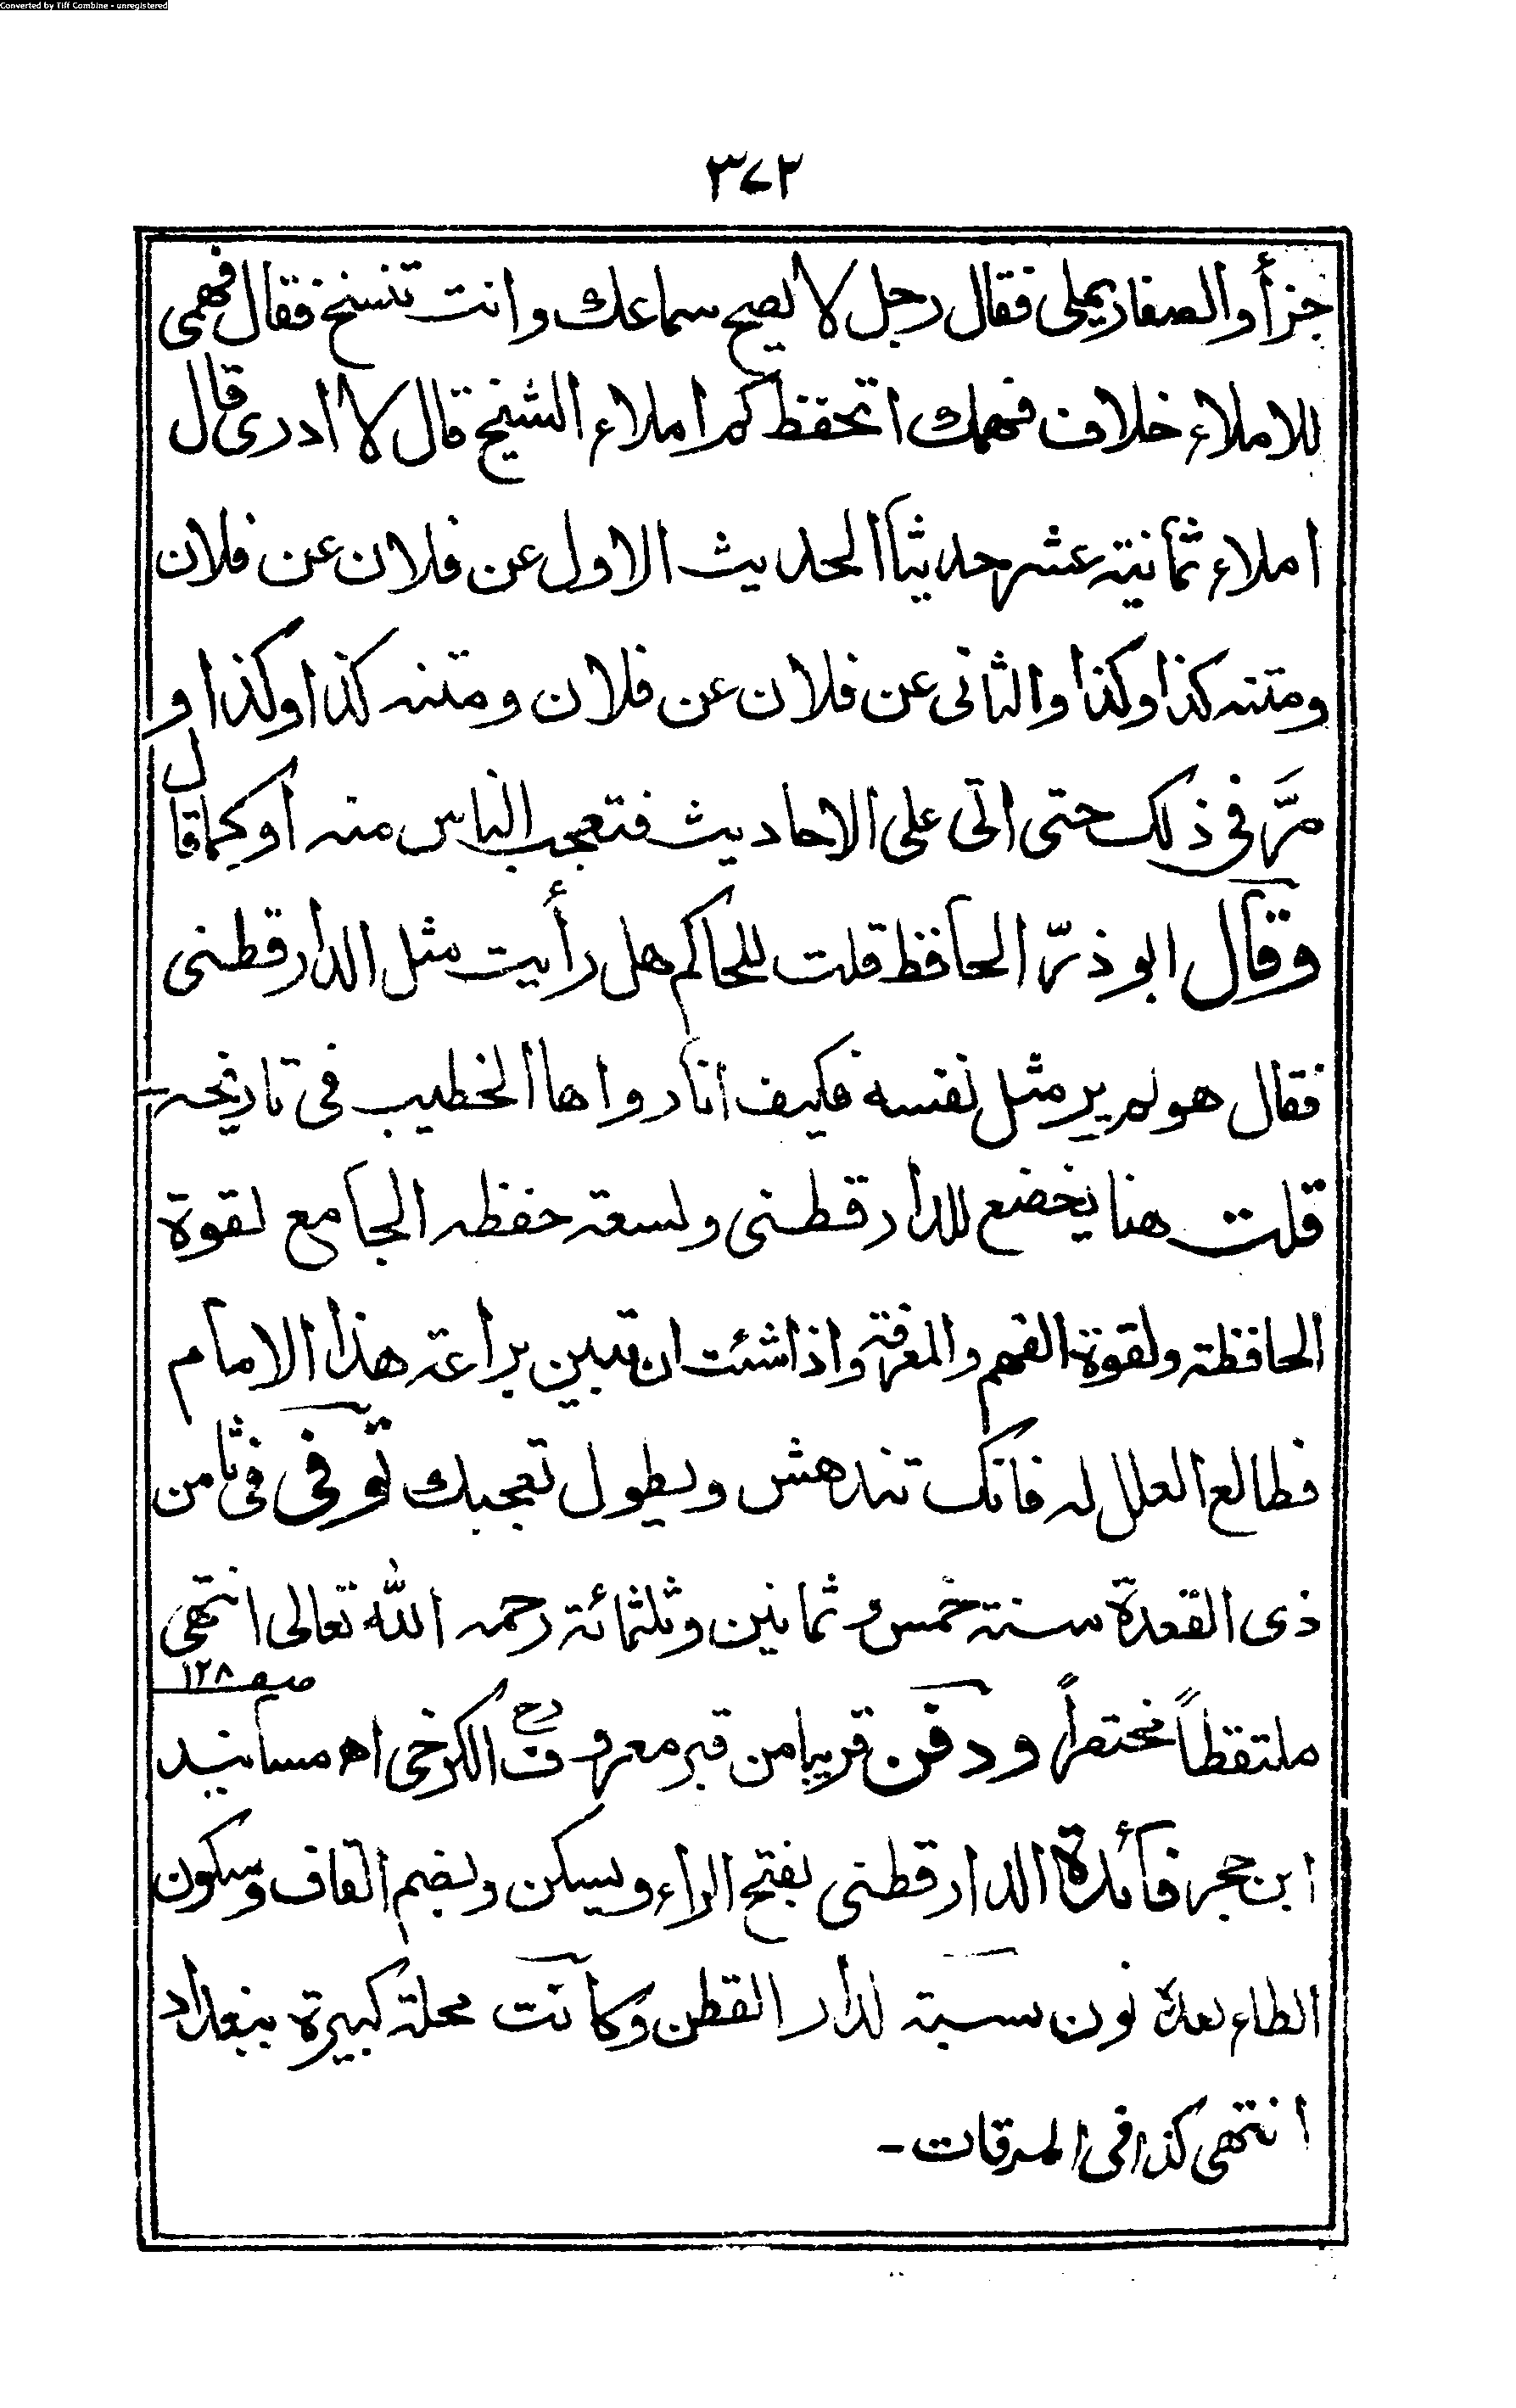 Converted by Tiff Combine - unregistered
٣٧٢
جزأ والصفار يملى فقال رجل لا يصح سماعك وانت تنسخ فقال فهمى
للاملاء خلاف فهمك اتحفظ كم املاء الشيخ قال لا ادرى قال
املاء ثمانية عشر حديثاً الحديث الاول عن فلان عن فلان
ومتنه كذا وكذا والثانى عن فلان عن فلان ومتنه كذا وكذا و
مرَّ فى ذلك حتى اتى على الاحاديث فتعجب الناس منه او كما قال
وقال ابو ذرّ الحافظ قلت للحاكم هل رأيت مثل الدارقطنى
فقال هو لم ير مثل نفسه فكيف انا رواها الخطيب فى تاريخه
قلت هنا يخضع للدارقطنى ولسعة حفظه الجامع لقوة
الحافظة ولقوة الفهم والمعرفة واذا شئت ان تبين براعة هذا الامام
فطالع العلل له فانك تندهش ويطول تعجبك توفى فى ثامن
ذى القعدة سنة خمس وثمانين وثلثمائة رحمه الله تعالى انتهى
صفـ ١٢٨
ملتقطاً مختصراً ودفن قريبا من قبر معروف الكرخى رح اھ مسانيد
ابن حجر فائدة الدارقطنى بفتح الراء ويسكن وبضم القاف وسكون
الطاء بعده نون نسبة لدار القطن وكانت محلة كبيرة ببغداد
انتهى كذا فى المرقات -